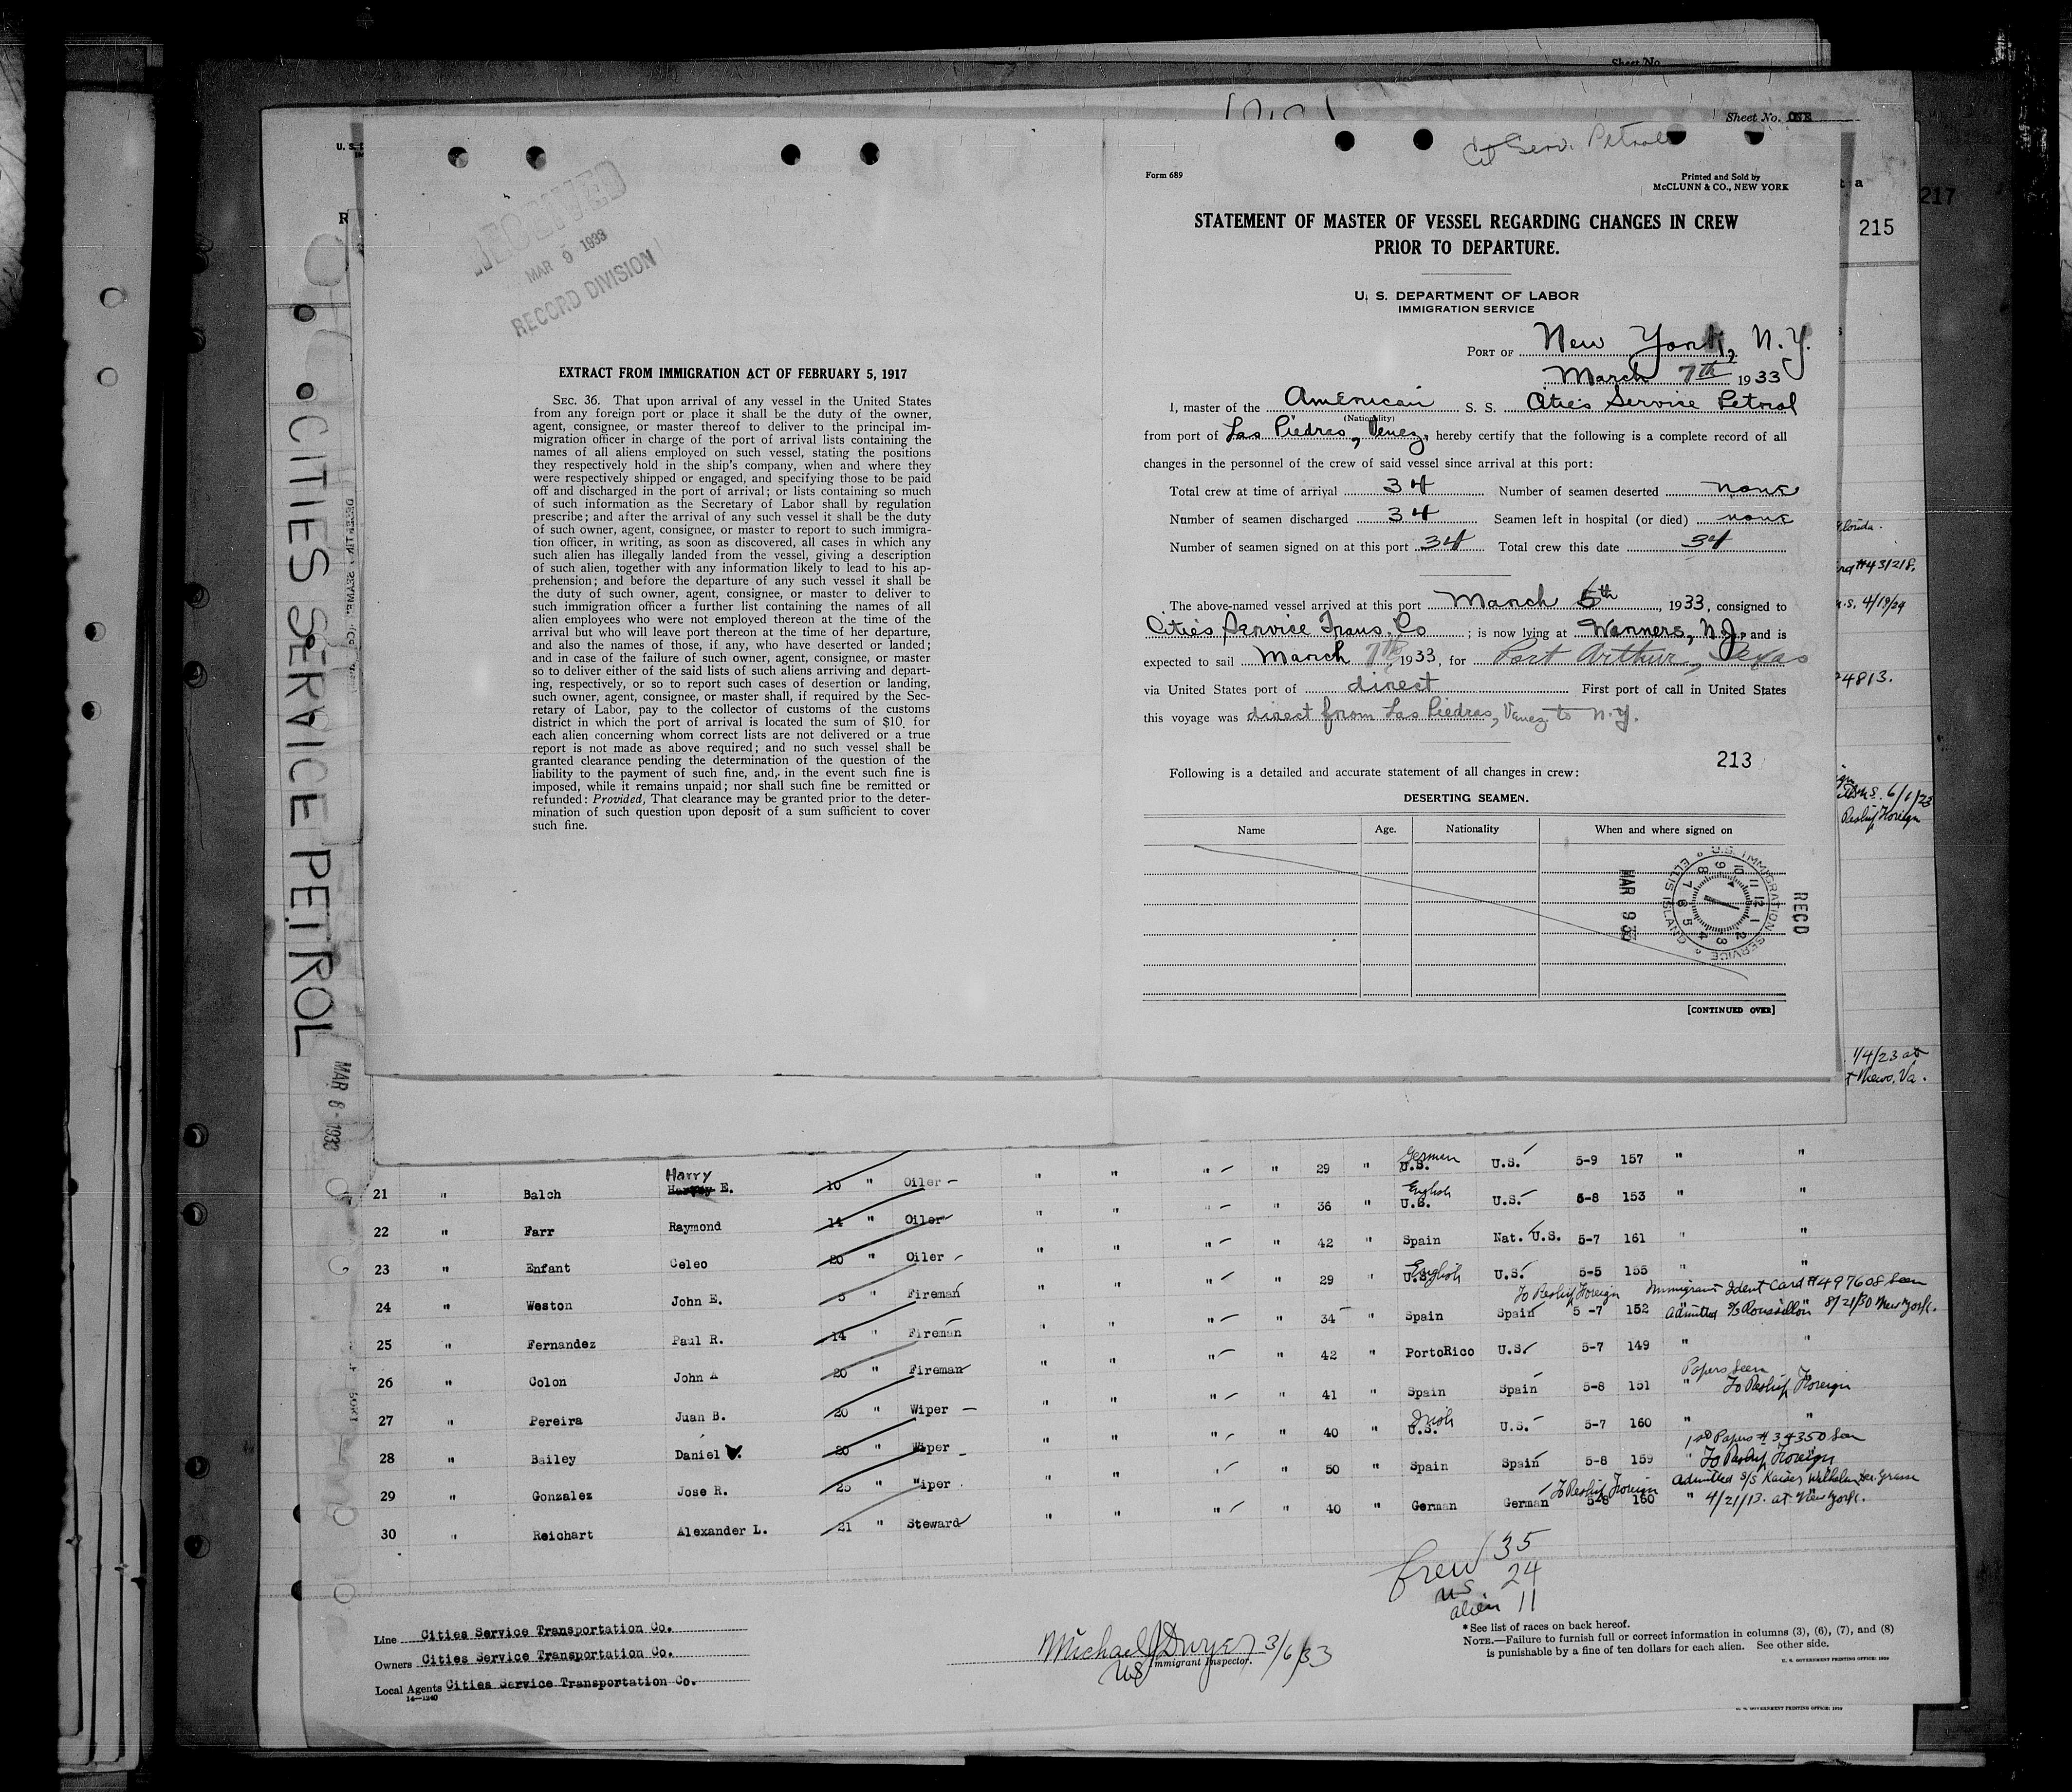 Sheet No.
Sheet No. ONE
217
215
Cit Serv. Petrol
Form 689
Printed and Sold by
McCLUNN & CO., NEW YORK
STATEMENT OF MASTER OF VESSEL REGARDING CHANGES IN CREW
PRIOR TO DEPARTURE.
U. S. DEPARTMENT OF LABOR
IMMIGRATION SERVICE
PORT OF New York, N.Y.
March 7th 1933
I, master of the American S. S. Cities Service Petrol
(Nationality)
from port of Las Piedras, Venez, hereby certify that the following is a complete record of all
changes in the personnel of the crew of said vessel since arrival at this port:
Total crew at time of arrival 34 Number of seamen deserted none
Number of seamen discharged 34 Seamen left in hospital (or died) none
Number of seamen signed on at this port 34 Total crew this date 34
The above-named vessel arrived at this port March 6th, 1933, consigned to
Cities Service Trans. Co ; is now lying at Warners, N.J., and is
expected to sail March 7th, 1933, for Port Arthur, Texas
via United States port of direct First port of call in United States
this voyage was direct from Las Piedras, Venez. to N.Y.
213
Following is a detailed and accurate statement of all changes in crew:
DESERTING SEAMEN.
Name Age. Nationality When and where signed on
RECD
U.S. IMMIGRATION SERVICE
ELLIS ISLAND
MAR 9
[CONTINUED OVER]
RECEIVED
MAR 9 1933
RECORD DIVISION
EXTRACT FROM IMMIGRATION ACT OF FEBRUARY 5, 1917
SEC. 36. That upon arrival of any vessel in the United States
from any foreign port or place it shall be the duty of the owner,
agent, consignee, or master thereof to deliver to the principal im-
migration officer in charge of the port of arrival lists containing the
names of all aliens employed on such vessel, stating the positions
they respectively hold in the ship's company, when and where they
were respectively shipped or engaged, and specifying those to be paid
off and discharged in the port of arrival; or lists containing so much
of such information as the Secretary of Labor shall by regulation
prescribe; and after the arrival of any such vessel it shall be the duty
of such owner, agent, consignee, or master to report to such immigra-
tion officer, in writing, as soon as discovered, all cases in which any
such alien has illegally landed from the vessel, giving a description
of such alien, together with any information likely to lead to his ap-
prehension; and before the departure of any such vessel it shall be
the duty of such owner, agent, consignee, or master to deliver to
such immigration officer a further list containing the names of all
alien employees who were not employed thereon at the time of the
arrival but who will leave port thereon at the time of her departure,
and also the names of those, if any, who have deserted or landed;
and in case of the failure of such owner, agent, consignee, or master
so to deliver either of the said lists of such aliens arriving and depart-
ing, respectively, or so to report such cases of desertion or landing,
such owner, agent, consignee, or master shall, if required by the Sec-
retary of Labor, pay to the collector of customs of the customs
district in which the port of arrival is located the sum of $10 for
each alien concerning whom correct lists are not delivered or a true
report is not made as above required; and no such vessel shall be
granted clearance pending the determination of the question of the
liability to the payment of such fine, and, in the event such fine is
imposed, while it remains unpaid; nor shall such fine be remitted or
refunded: Provided, That clearance may be granted prior to the deter-
mination of such question upon deposit of a sum sufficient to cover
such fine.
CITIES SERVICE PETROL
MAR 8 - 1933
Florida.
#431218.
4/19/29
4813.
6/1/23
Reship Foreign
1/4/23 at
News, Va.
21 " Balch Harry E. 10 " Oiler " " " " 29 " German U.S. U.S. 5-9 157 " "
22 " Farr Raymond 14 " Oiler " " " " 36 " English U.S. U.S. 5-8 153 " "
23 " Enfant Celeo 20 " Oiler " " " " 42 " Spain Nat. U.S. 5-7 161 " "
24 " Weston John E. 5 " Fireman " " " " 29 " English U.S. U.S. 5-5 155 " "
To Reship Foreign Immigrant Ident Card #497608 seen
25 " Fernandez Paul R. 14 " Fireman " " " " 34 " Spain Spain 5-7 152 Admitted S/S Roussillon 8/21/30 New York.
26 " Colon John A 20 " Fireman " " " " 42 " PortoRico U.S. 5-7 149 " "
Papers Seen
27 " Pereira Juan B. 20 " Wiper " " " " 41 " Spain Spain 5-8 151 " To Reship Foreign
28 " Bailey Daniel 20 " Wiper " " " " 40 " Irish U.S. U.S. 5-7 160 " "
1st Papers #34350 seen
29 " Gonzalez Jose R. 25 " Wiper " " " " 50 " Spain Spain 5-8 159 " To Reship Foreign
To Reship Foreign Admitted S/S Kaiser Wilhelm der Grosse
30 " Reichart Alexander L. 21 " Steward " " " " 40 " German German 5-8 150 " 4/21/13. at New York.
Crew 35
U.S. 24
alien 11
Line Cities Service Transportation Co.
Owners Cities Service Transportation Co.
Local Agents Cities Service Transportation Co.
14—1240
Michael J Dwyer 3/6/33
US Immigrant Inspector.
* See list of races on back hereof.
NOTE.—Failure to furnish full or correct information in columns (3), (6), (7), and (8)
is punishable by a fine of ten dollars for each alien. See other side.
U. S. GOVERNMENT PRINTING OFFICE: 1929
U. S. GOVERNMENT PRINTING OFFICE: 1929